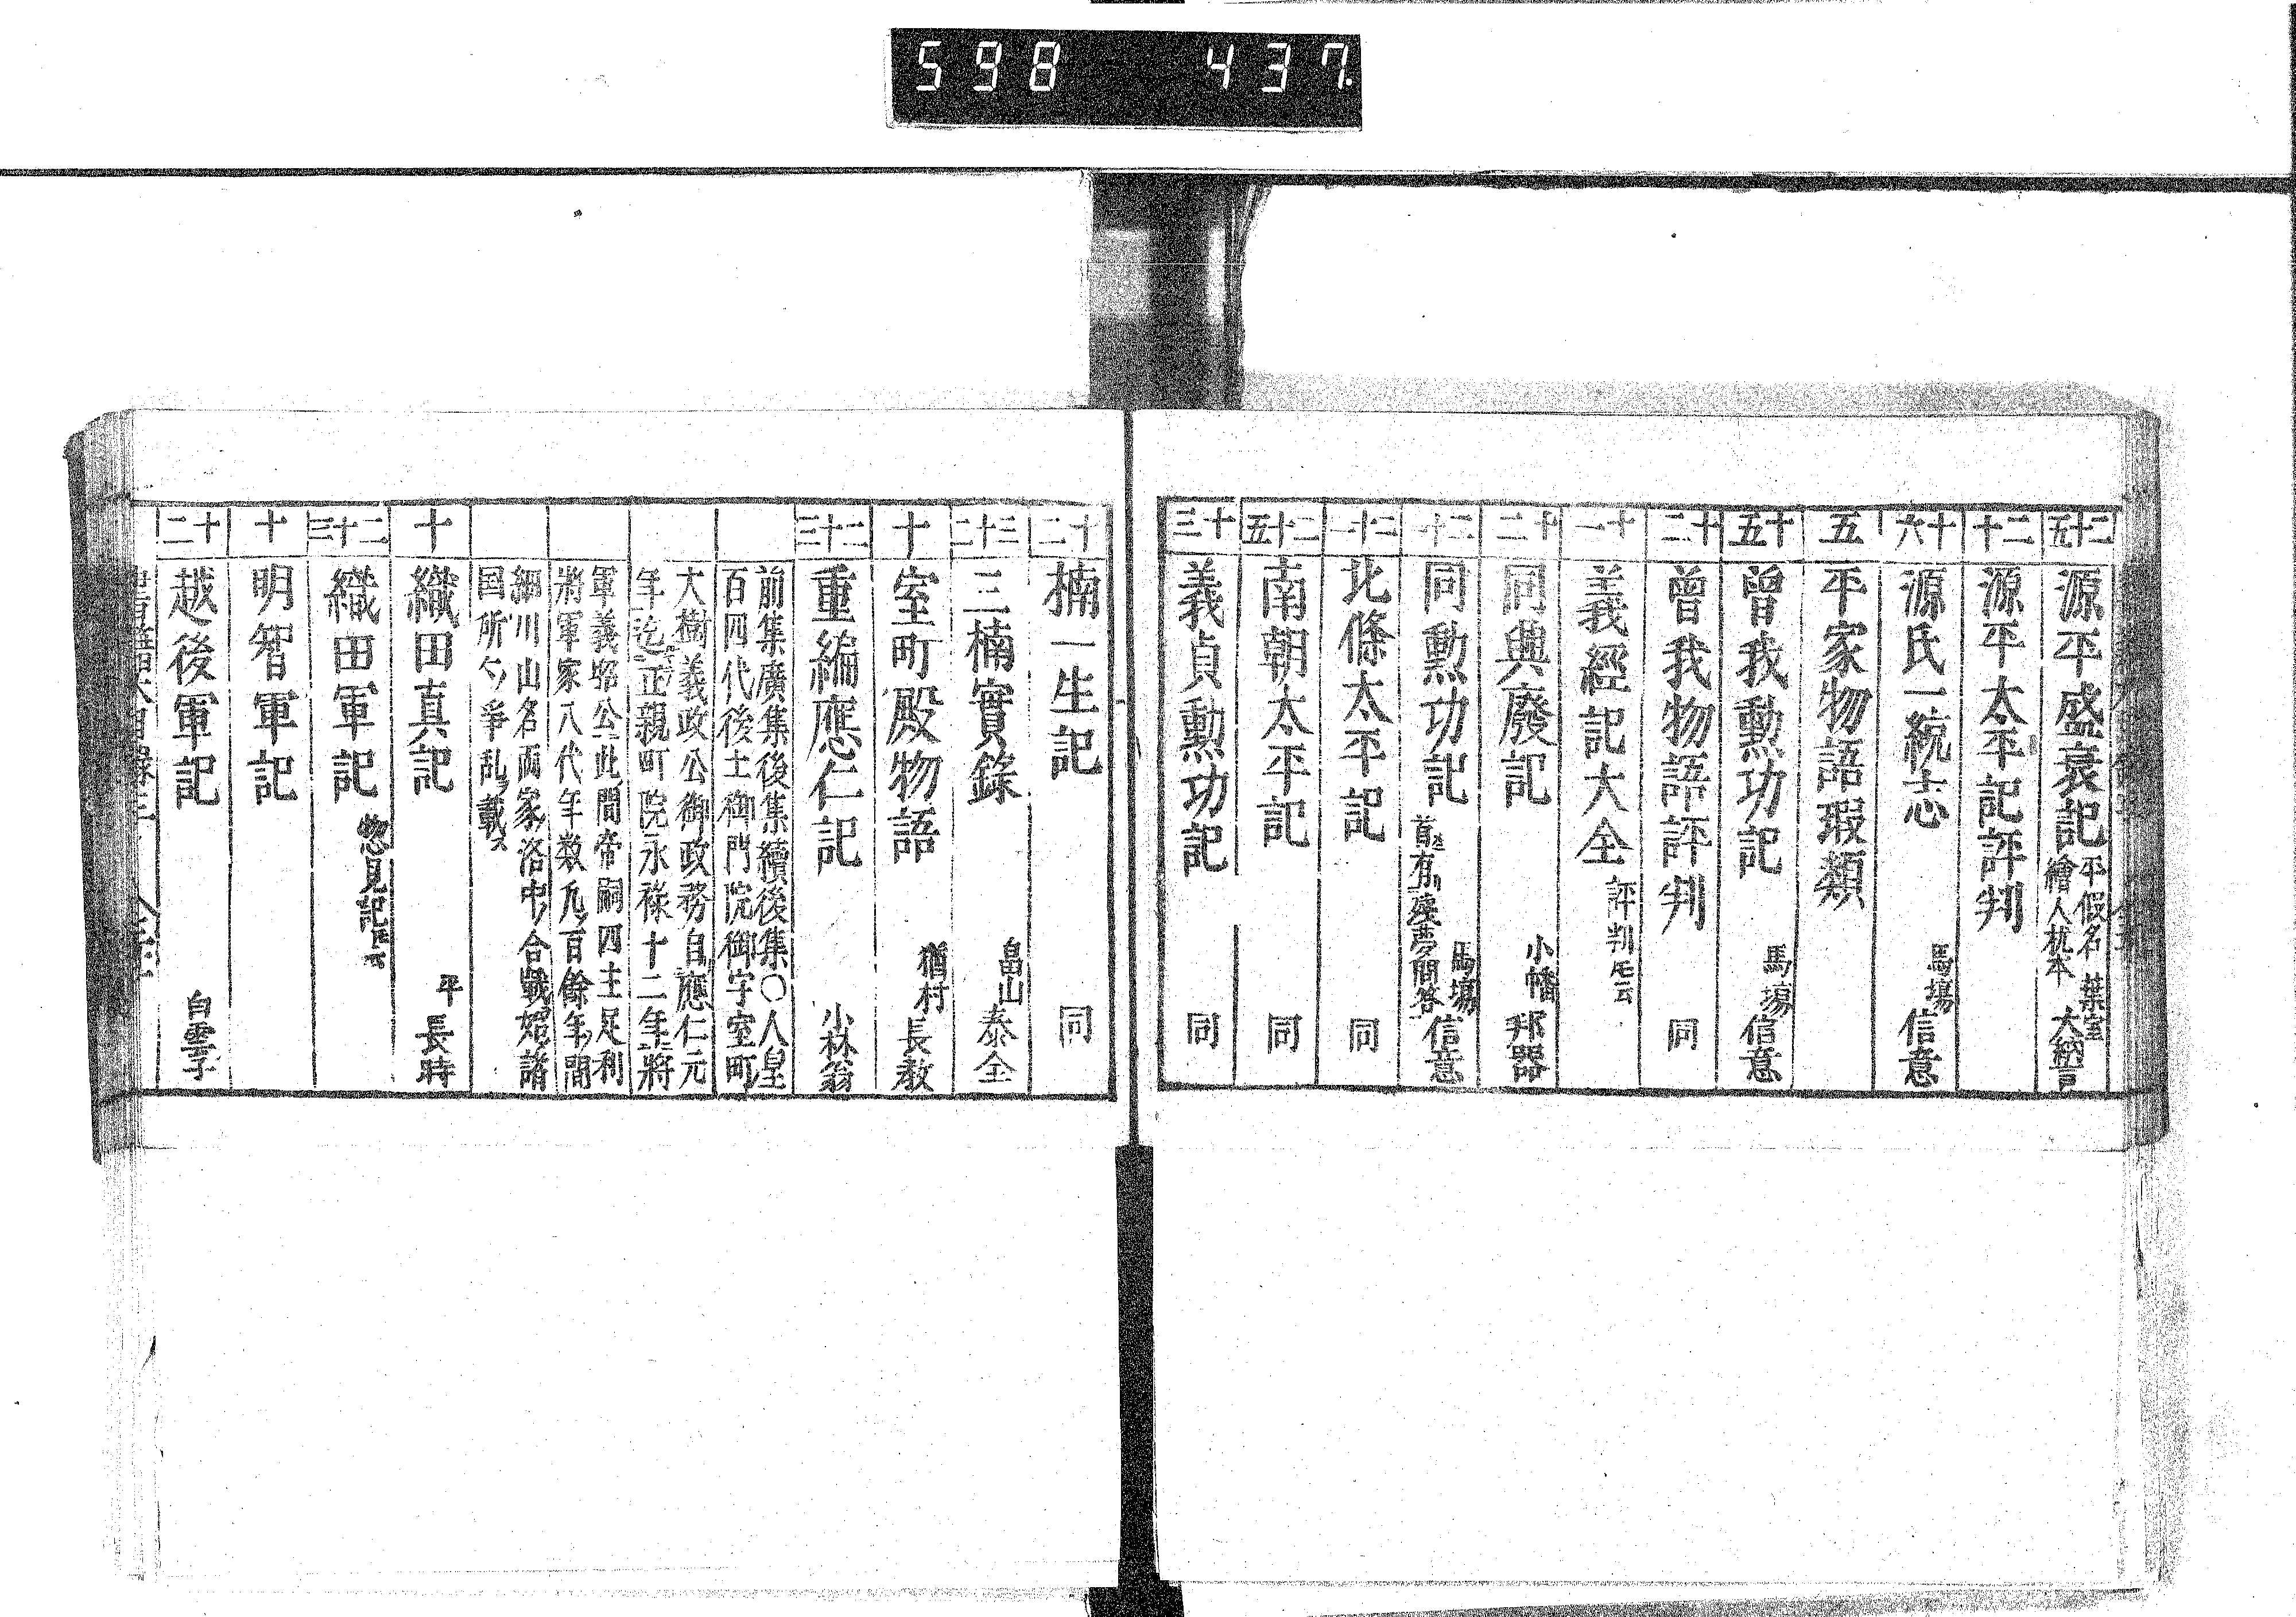 598 437
二十五 源平盛衰記 平假名 繪入板本 葉室 大納言
二十 源平太平記評判
十六 源氏一統志 馬場 信意
五 平家物語瑕類
十五 曾我勲功記 馬場 信意
十二 曾我物語評判 同
十一 義經記大全 評判 トモ云
十二 同興廢記 小幡 邦器
二十 同勲功記 首巻有殘夢問答 馬場 信意
二十一 北條太平記 同
二十五 南朝太平記 同
十三 義貞勲功記 同
十二 楠一生記 同
三十二 三楠實錄 畠山 泰全
十 室町殿物語 猶村 長教
二十三 重編應仁記 小林翁
前集廣集後集續後集〇人皇
百四代後土御門院御宇室町ノ
大樹義政公御政務自應仁元
年迄正親町院永禄十二年將
軍義昭公此間帝嗣四主足利
將軍家八代年数凡ソ百餘年ノ間
細川山名両家洛中ノ合戰始諸
国所々ノ爭乱ヲ載ス
十 織田真記 平 長時
二十三 織田軍記 惣見記トモ云
十 明智軍記
十二 越後軍記 白雲子